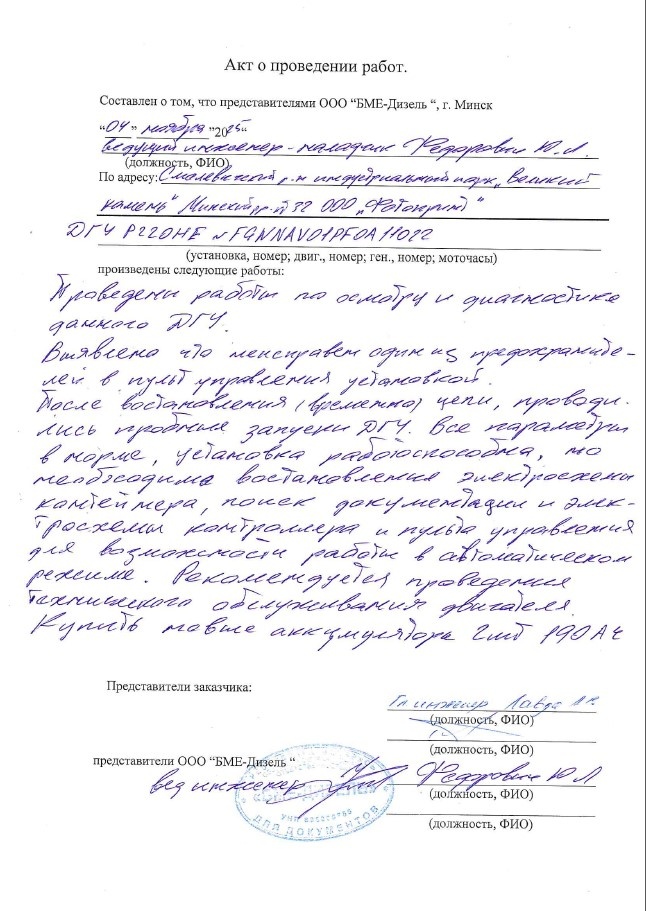 Акт о проведении работ.
Составлен о том, что представителями ООО “БМЕ-Дизель “, г. Минск
“04” ноября ”2025“
ведущий инженер-наладчик Федорович Ю.Л.
(должность, ФИО)
По адресу: Смолевичский р-н индустриальный парк „Великий
камень“ Минский р-н 32 000 „Фотонгрид“
ДГУ P220HE
(установка, номер; двиг., номер; ген., номер; моточасы)
произведены следующие работы:
Проведены работы по осмотру и диагностике
данного ДГУ.
Выявлено что неисправен один из предохраните-
лей в пульт управления установкой.
После востановления (временно) цепи, проводи-
лись пробные запуски ДГУ. Все параметры
в норме, установка работоспособна, но
необходима востановления электросхемы
контейнера, поиск документации и элек-
тросхемы контроллера и пульта управления
для возможности работы в автоматическом
режиме. Рекомендуется проведения
технического обслуживания двигателя.
Купить новые аккумулятора 2шт 190 Ач
Представители заказчика:
Гл. инженер
(должность, ФИО)
(должность, ФИО)
представители ООО “БМЕ-Дизель “
вед инженер Федорович Ю Л
(должность, ФИО)
(должность, ФИО)
ДЛЯ ДОКУМЕНТОВ